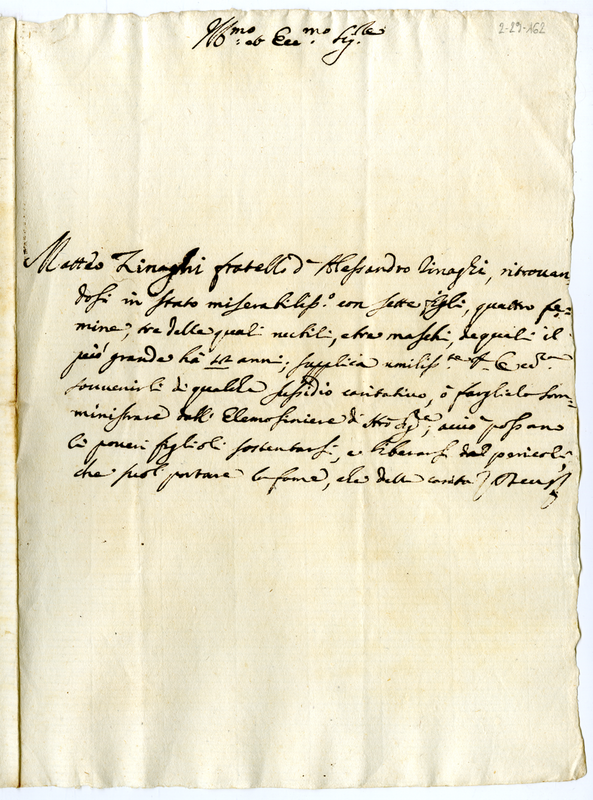 2-29-162
Ill.mo et Ecc.mo Sig.re
Matteo Zinaghi fratello d' Alessandro Zinaghi, ritrouan=
dosi in stato miserabiliss.o con sette figli, quattro fe=
mine, tre delle quali nubili, e tre maschi, de quali il
più grande hà anni, supplica umiliss.te V. Ecc.
souuenirli di qualche sussidio caritatiuo, ò farglielo som=
ministrare dall' Elemosiniere di N'ro Sig.re, acciò possano
li poueri figlioli sostentarsi, e liberarsi dal pericolo,
che suol portare la fame, che della carità